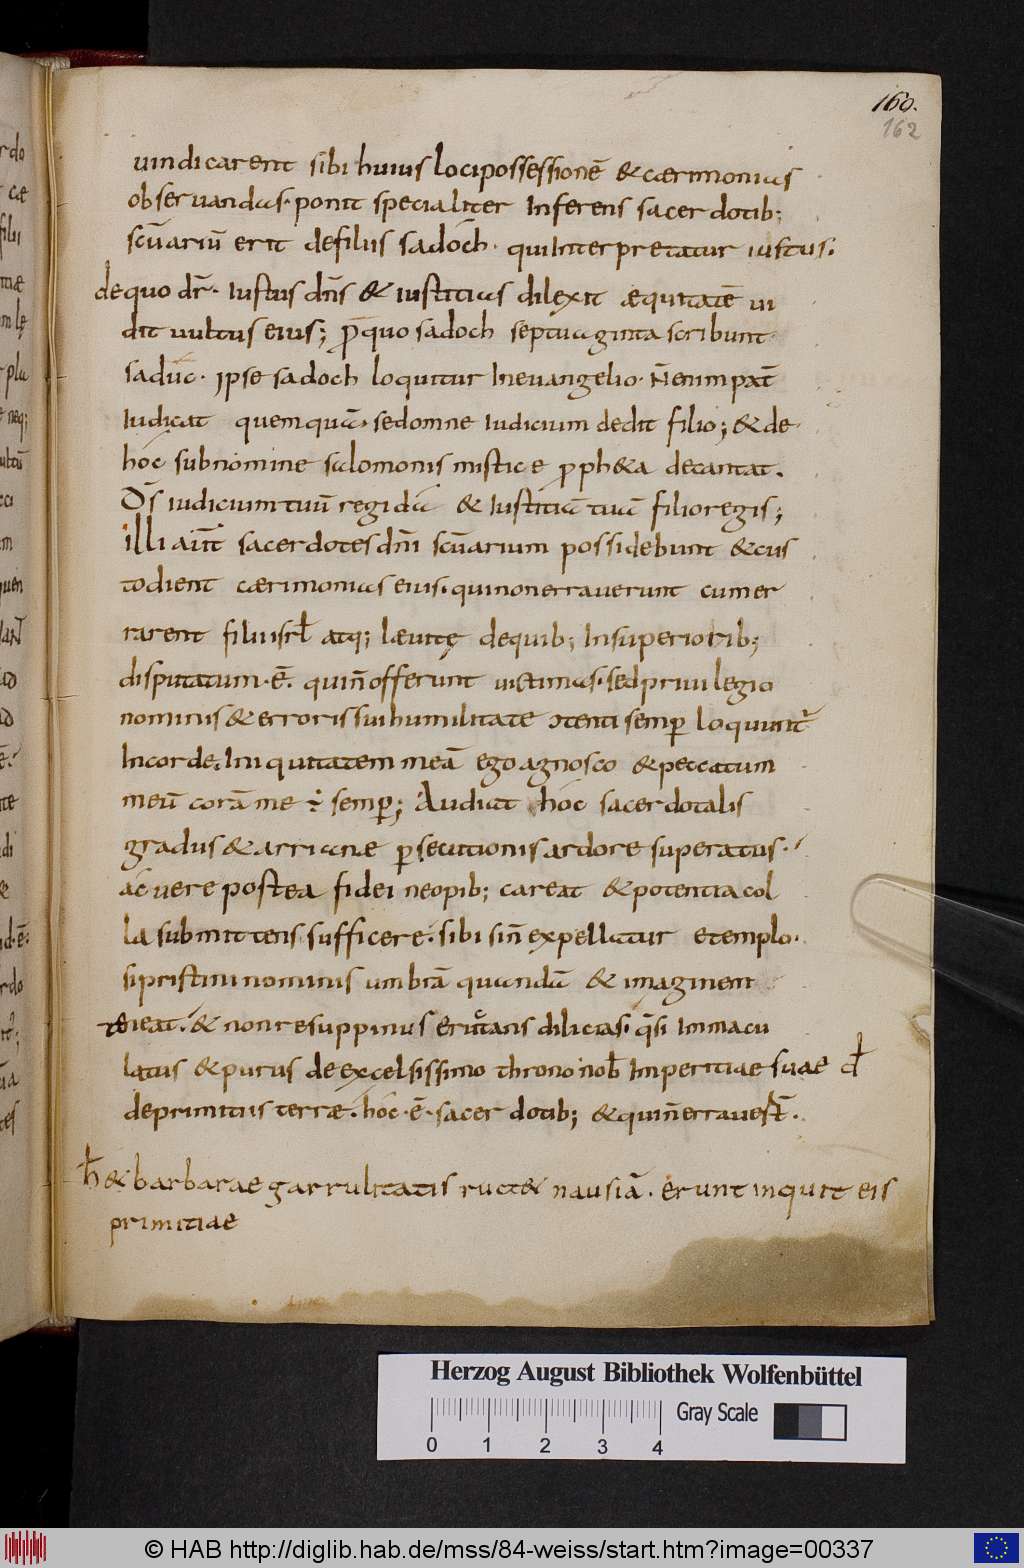 160.
162
uindicarent sibi huius loci possessionē & cærimonias
obseruandas. ponit specialiter Inferens sacerdotib;
scūariū erit defiliis sadoch. qui Interpretatur iustus.
de quo dr̄. Iustus dn̄s & iustitias dilexit æquitatē ui
dit uultus eius; p̄quo sadoch septuaginta scribunt
saduc. Ipse sadoch loquitur Ineuangelio. Ñ enim pat̄
Iudicat quemquā. sedomne Iudicium dedit filio; & de
hoc subnomine salomonis mistice proph&a decantat.
Ds̄ iudicium tuū regi da & Iustitiā tuā filio regis;
illi aut̄ sacerdotes dn̄i scūarium possidebunt & cus
todient cærimonias eius. qui non errauerunt cum er
rarent filii isrl̄ atq; læuitę dequib; Insuperiorib;
disputatum.ē. quin̄ offerunt uictimas. sed priuilegio
nominis & erroris sui humilitate ɔtenti semp̄ loquunt̄
Incorde. Iniquitatem meā ego agnosco & peccatum
meū corā me ÷ semp̄; Audiat hoc sacerdotalis
gradus & arrianæ p̄secutionis ardore superatus.
ac uere postea fidei neopib; careat & potentia col
la submittens sufficere. sibi sin̄ expellatur etemplo.
si pristini nominis umbrā quandā & imaginem
teneat. & non resuppinus eruct̄ans dilicias. q̄si Immacu
latus & purus de excelsissimo throno nob̄ Imperitiae suae đ
deprimitiis terræ. hoc.ē. sacerdotib; & quin̄ errauer̄t.
ħ & barbarae garrulitatis ruct& nausiā. erunt inquit eis
primitiae
Herzog August Bibliothek Wolfenbüttel
Gray Scale
0 1 2 3 4
© HAB http://diglib.hab.de/mss/84-weiss/start.htm?image=00337